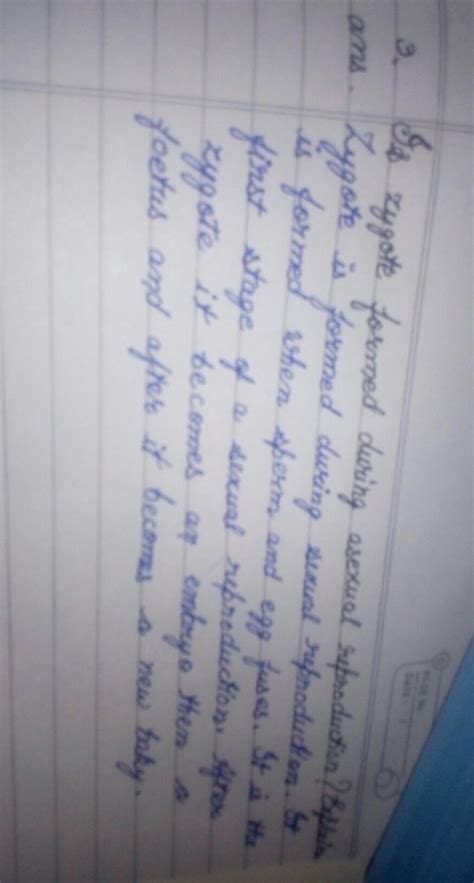 3. Is zygote formed during asexual reproduction? Explain
ans. Zygote is formed during sexual reproduction. It
is formed when sperm and egg fuses. It is the
first stage of a sexual reproduction. After
zygote it becomes an embryo then a
foetus and after it becomes a new baby.